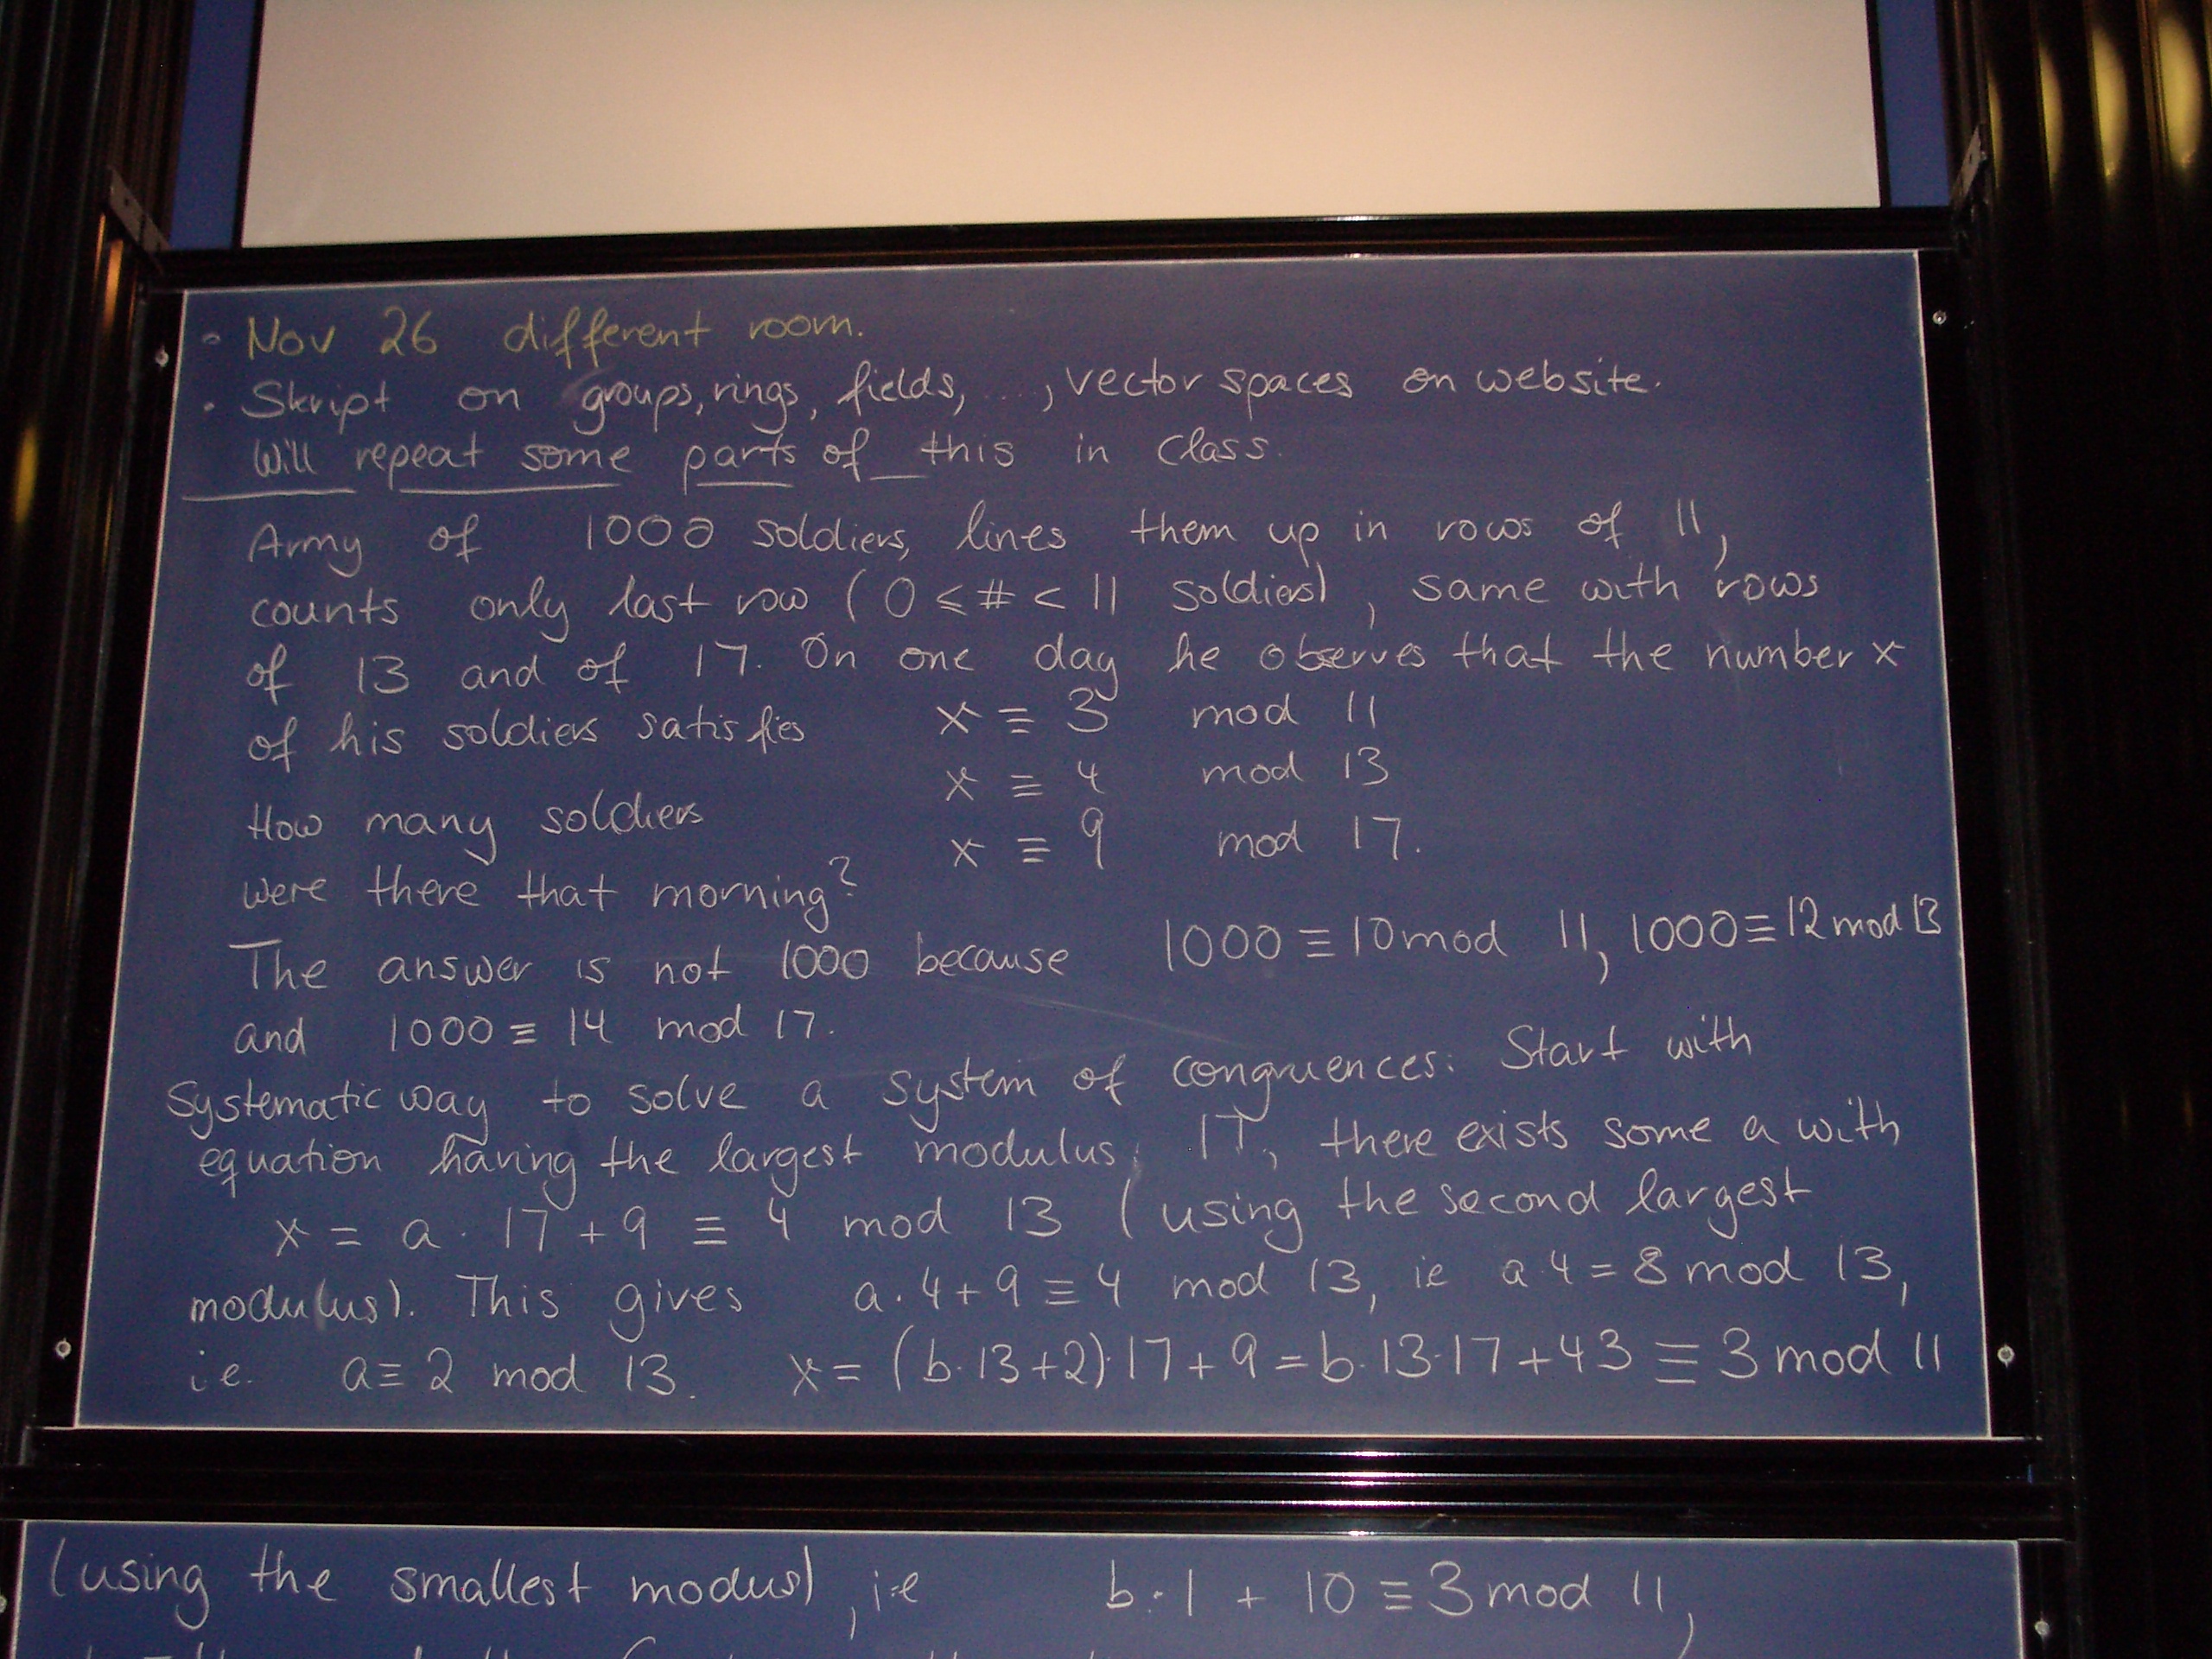 • Nov 26 different room.
• Skript on groups, rings, fields, ..., vector spaces on website.
Will repeat some parts of this in class.
Army of 1000 soldiers, lines them up in rows of 11,
counts only last row (0 ≤ # < 11 soldiers), same with rows
of 13 and of 17. On one day he observes that the number x
of his soldiers satisfies x ≡ 3 mod 11
x ≡ 4 mod 13
How many soldiers
x ≡ 9 mod 17.
were there that morning?
The answer is not 1000 because 1000 ≡ 10 mod 11, 1000 ≡ 12 mod 13
and 1000 ≡ 14 mod 17.
Systematic way to solve a system of congruences: Start with
equation having the largest modulus, 17, there exists some a with
x = a · 17 + 9 ≡ 4 mod 13 (using the second largest
modulus). This gives a · 4 + 9 ≡ 4 mod 13, ie a · 4 = 8 mod 13,
i.e. a ≡ 2 mod 13. x = (b · 13 + 2) · 17 + 9 = b · 13 · 17 + 43 ≡ 3 mod 11
(using the smallest modus), i.e b · 1 + 10 ≡ 3 mod 11,